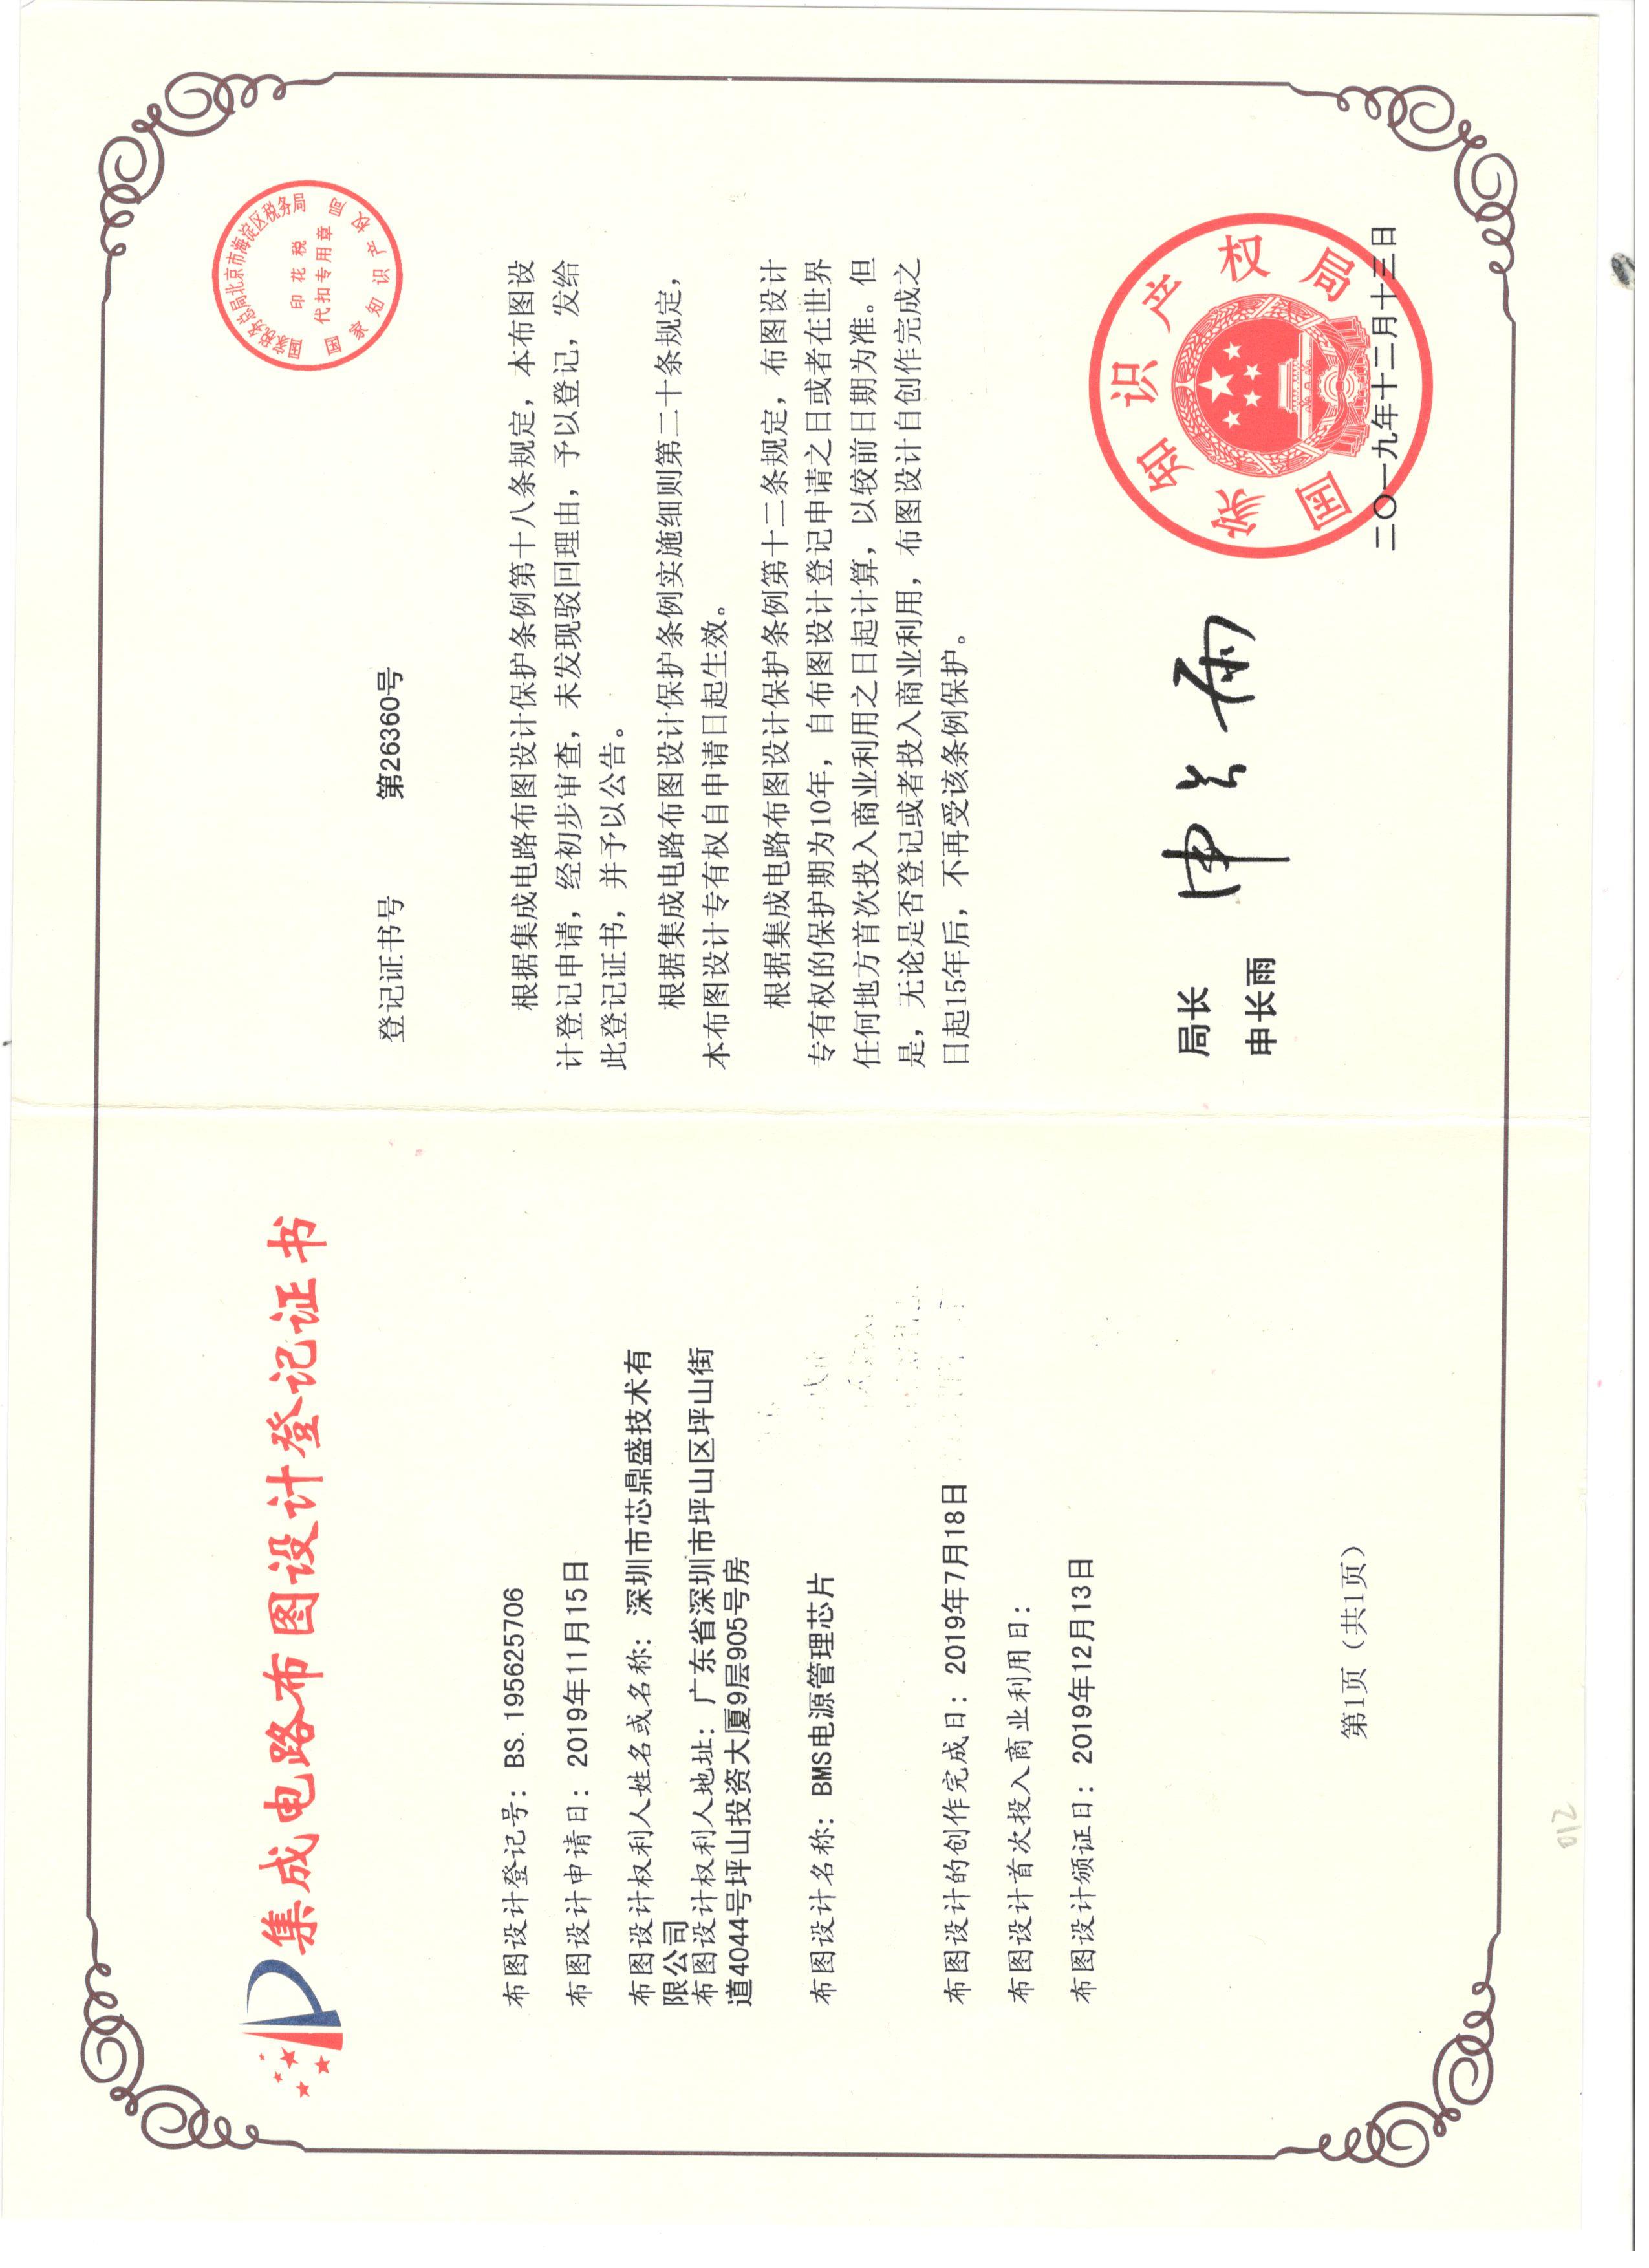 集成电路布图设计登记证书
布图设计登记号：BS.195625706
布图设计申请日：2019年11月15日
布图设计权利人姓名或名称：深圳市芯鼎盛技术有
限公司
布图设计权利人地址：广东省深圳市坪山区坪山街
道4044号坪山投资大厦9层905号房
布图设计名称：BMS电源管理芯片
布图设计的创作完成日：2019年7月18日
布图设计首次投入商业利用日：
布图设计颁证日：2019年12月13日
第1页（共1页）
012
国家税务总局北京市海淀区税务局
印花税
代扣专用章
国家知识产权局
登记证书号 第26360号
根据集成电路布图设计保护条例第十八条规定，本布图设
计登记申请，经初步审查，未发现驳回理由，予以登记，发给
此登记证书，并予以公告。
根据集成电路布图设计保护条例实施细则第二十条规定，
本布图设计专有权自申请日起生效。
根据集成电路布图设计保护条例第十二条规定，布图设计
专有权的保护期为10年，自布图设计登记申请之日或者在世界
任何地方首次投入商业利用之日起计算，以较前日期为准。但
是，无论是否登记或者投入商业利用，布图设计自创作完成之
日起15年后，不再受该条例保护。
局长
申长雨
申长雨
国家知识产权局
二〇一九年十二月十三日